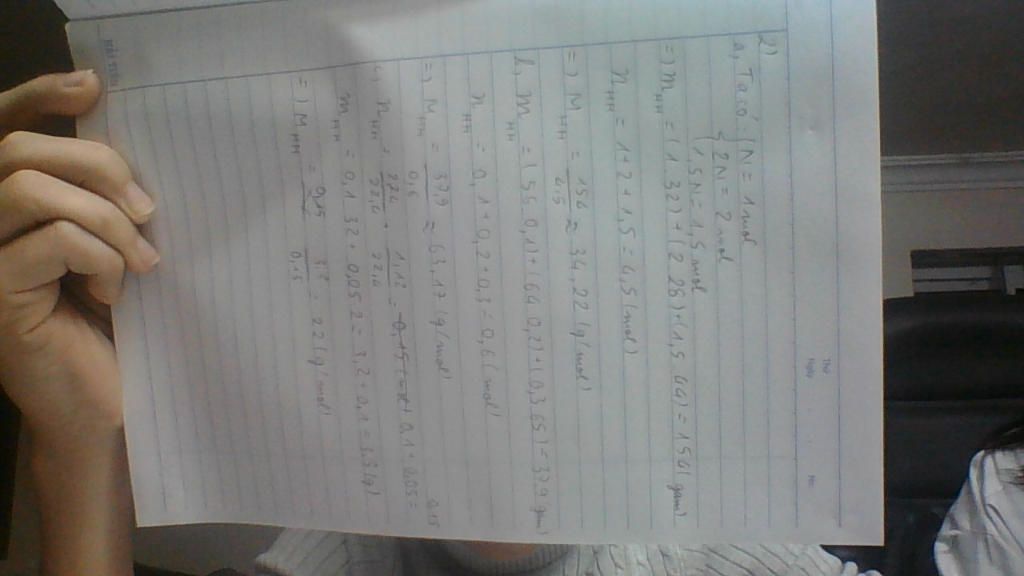 Thứ
Ngày No.
2)
a, Ta có: {N = 1 mol
{2N = 2 mol
1,5N = 1,5 mol
=) m_HH = (1 32) + (2 28) + (1,5 44) = 154 (gam)
n_HH = 1 + 2 + 1,5 = 4,5 (mol)
=) M_HH = 154 / 4,5 ≈ 34,22 (g/mol)
b, m_HH = (55 0,1) + (64 0,2) + (0,3 65) = 37,9 gam)
n_HH = 0,1 + 0,2 + 0,3 = 0,6 (mol)
=) M_HH = 37,9 / 0,6 ≈ 63,17 (g/mol)
c, n_HH = 2,24 / 22,4 + 1,12 / 22,4 = 0,1 + 0,05 = 0,15
m_HH = 0,1 32 + 0,05 2 = 3,2 + 0,1 = 3,3 (g)
=) M_HH = 3,3 / 0,15 = 22 (g/mol)